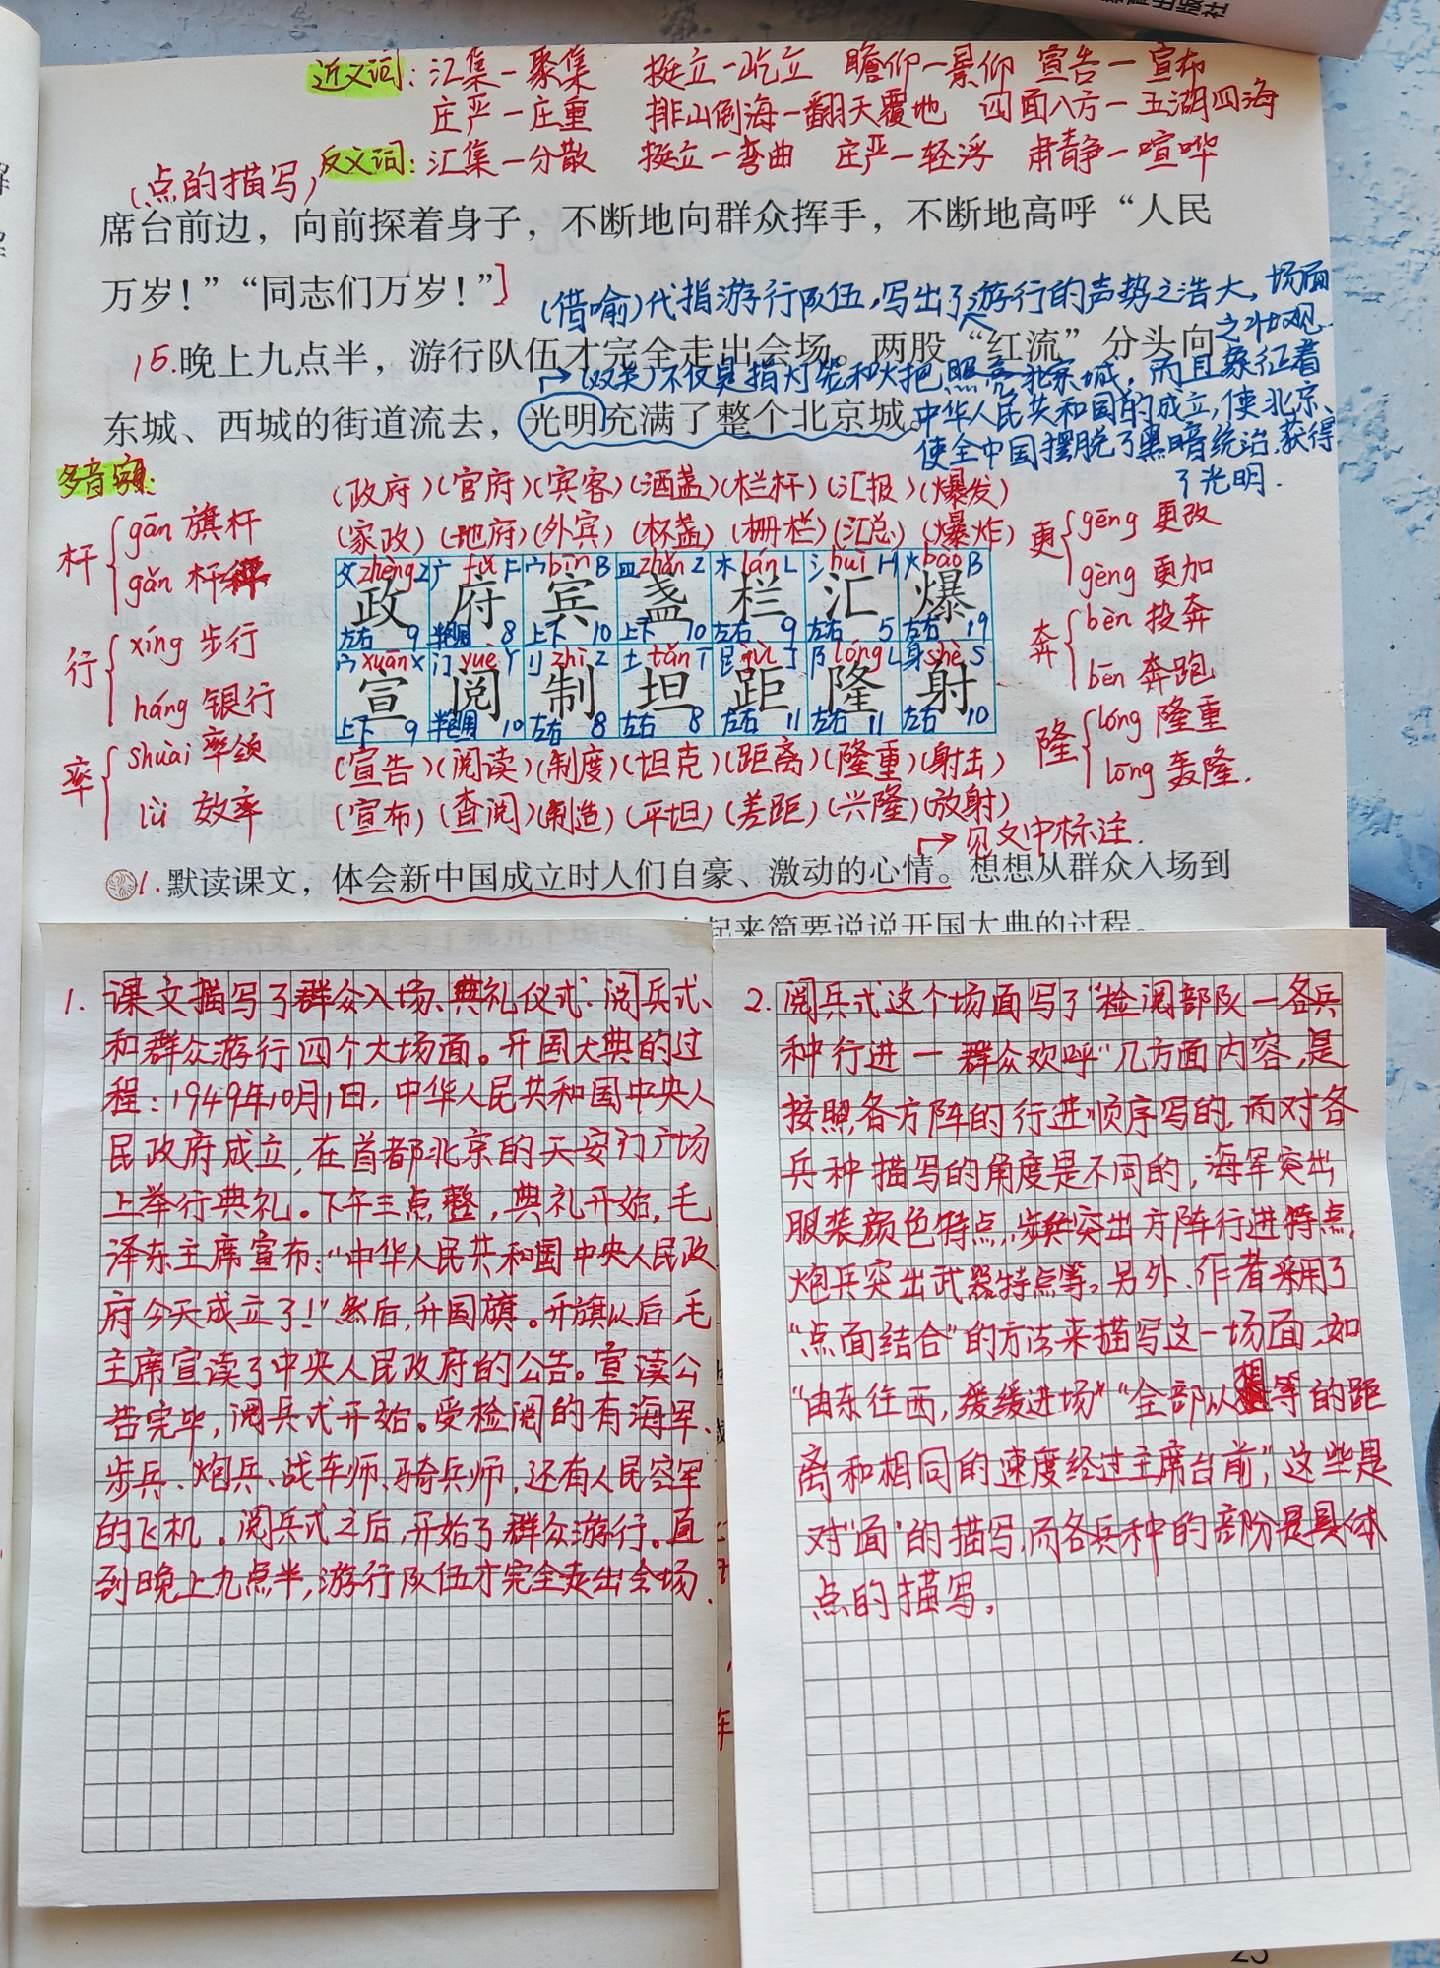 近义词：汇集—聚集 挺立—屹立 瞻仰—景仰 宣告—宣布
庄严—庄重 排山倒海—翻天覆地 四面八方—五湖四海
反义词：汇集—分散 挺立—弯曲 庄严—轻浮 肃静—喧哗
（点的描写）
席台前边，向前探着身子，不断地向群众挥手，不断地高呼“人民
万岁！”“同志们万岁！”］
（借喻）代指游行队伍，写出了游行的声势之浩大，场面
之壮观.
15.晚上九点半，游行队伍才完全走出会场。两股“红流”分头向
→（双关）不仅是指灯笼和火把照亮北京城，而且象征着
东城、西城的街道流去，光明充满了整个北京城。
中华人民共和国的成立，使北京、
使全中国摆脱了黑暗统治，获得
了光明.
多音字：
杆 gān 旗杆
gǎn 杆秤
行 xíng 步行
háng 银行
率 shuài 率领
lǜ 效率
（政府）（官府）（宾客）（酒盏）（栏杆）（汇报）（爆发）
（家政）（地府）（外宾）（杯盏）（栅栏）（汇总）（爆炸）
攵 zhèng Z 广 fǔ F 宀 bīn B 皿 zhǎn Z 木 lán L 氵 huì H 火 bào B
政 府 宾 盏 栏 汇 爆
左右 9 半包围 8 上下 10 上下 10 左右 9 左右 5 左右 19
宀 xuān X 门 yuè Y 刂 zhì Z 土 tǎn T 𧾷 jù J 阝 lóng L 身 shè S
宣 阅 制 坦 距 隆 射
上下 9 半包围 10 左右 8 左右 8 左右 11 左右 11 左右 10
（宣告）（阅读）（制度）（坦克）（距离）（隆重）（射击）
（宣布）（查阅）（制造）（平坦）（差距）（兴隆）（放射）
更 gēng 更改
gèng 更加
奔 bèn 投奔
bēn 奔跑
隆 lóng 隆重
lōng 轰隆.
→见文中标注.
1.默读课文，体会新中国成立时人们自豪、激动的心情。想想从群众入场到
起来简要说说开国大典的过程。
1. 课文描写了群众入场、典礼仪式、阅兵式、
和群众游行四个大场面。开国大典的过
程：1949年10月1日，中华人民共和国中央人
民政府成立，在首都北京的天安门广场
上举行典礼。下午三点整，典礼开始，毛
泽东主席宣布：“中华人民共和国中央人民政
府今天成立了！”然后，升国旗。升旗以后，毛
主席宣读了中央人民政府的公告。宣读公
告完毕，阅兵式开始。受检阅的有海军、
步兵、炮兵、战车师、骑兵师，还有人民空军
的飞机。阅兵式之后，开始了群众游行。直
到晚上九点半，游行队伍才完全走出会场.
2. 阅兵式这个场面写了“检阅部队—各兵
种行进—群众欢呼”几方面内容，是
按照各方阵的行进顺序写的，而对各
兵种描写的角度是不同的，海军突出
服装颜色特点，步兵突出方阵行进特点，
炮兵突出武器特点等。另外，作者采用了
“点面结合”的方法来描写这一场面，如
“由东往西，缓缓进场”“全部以相等的距
离和相同的速度经过主席台前”，这些是
对“面”的描写，而各兵种的部份是具体
点的描写。
车